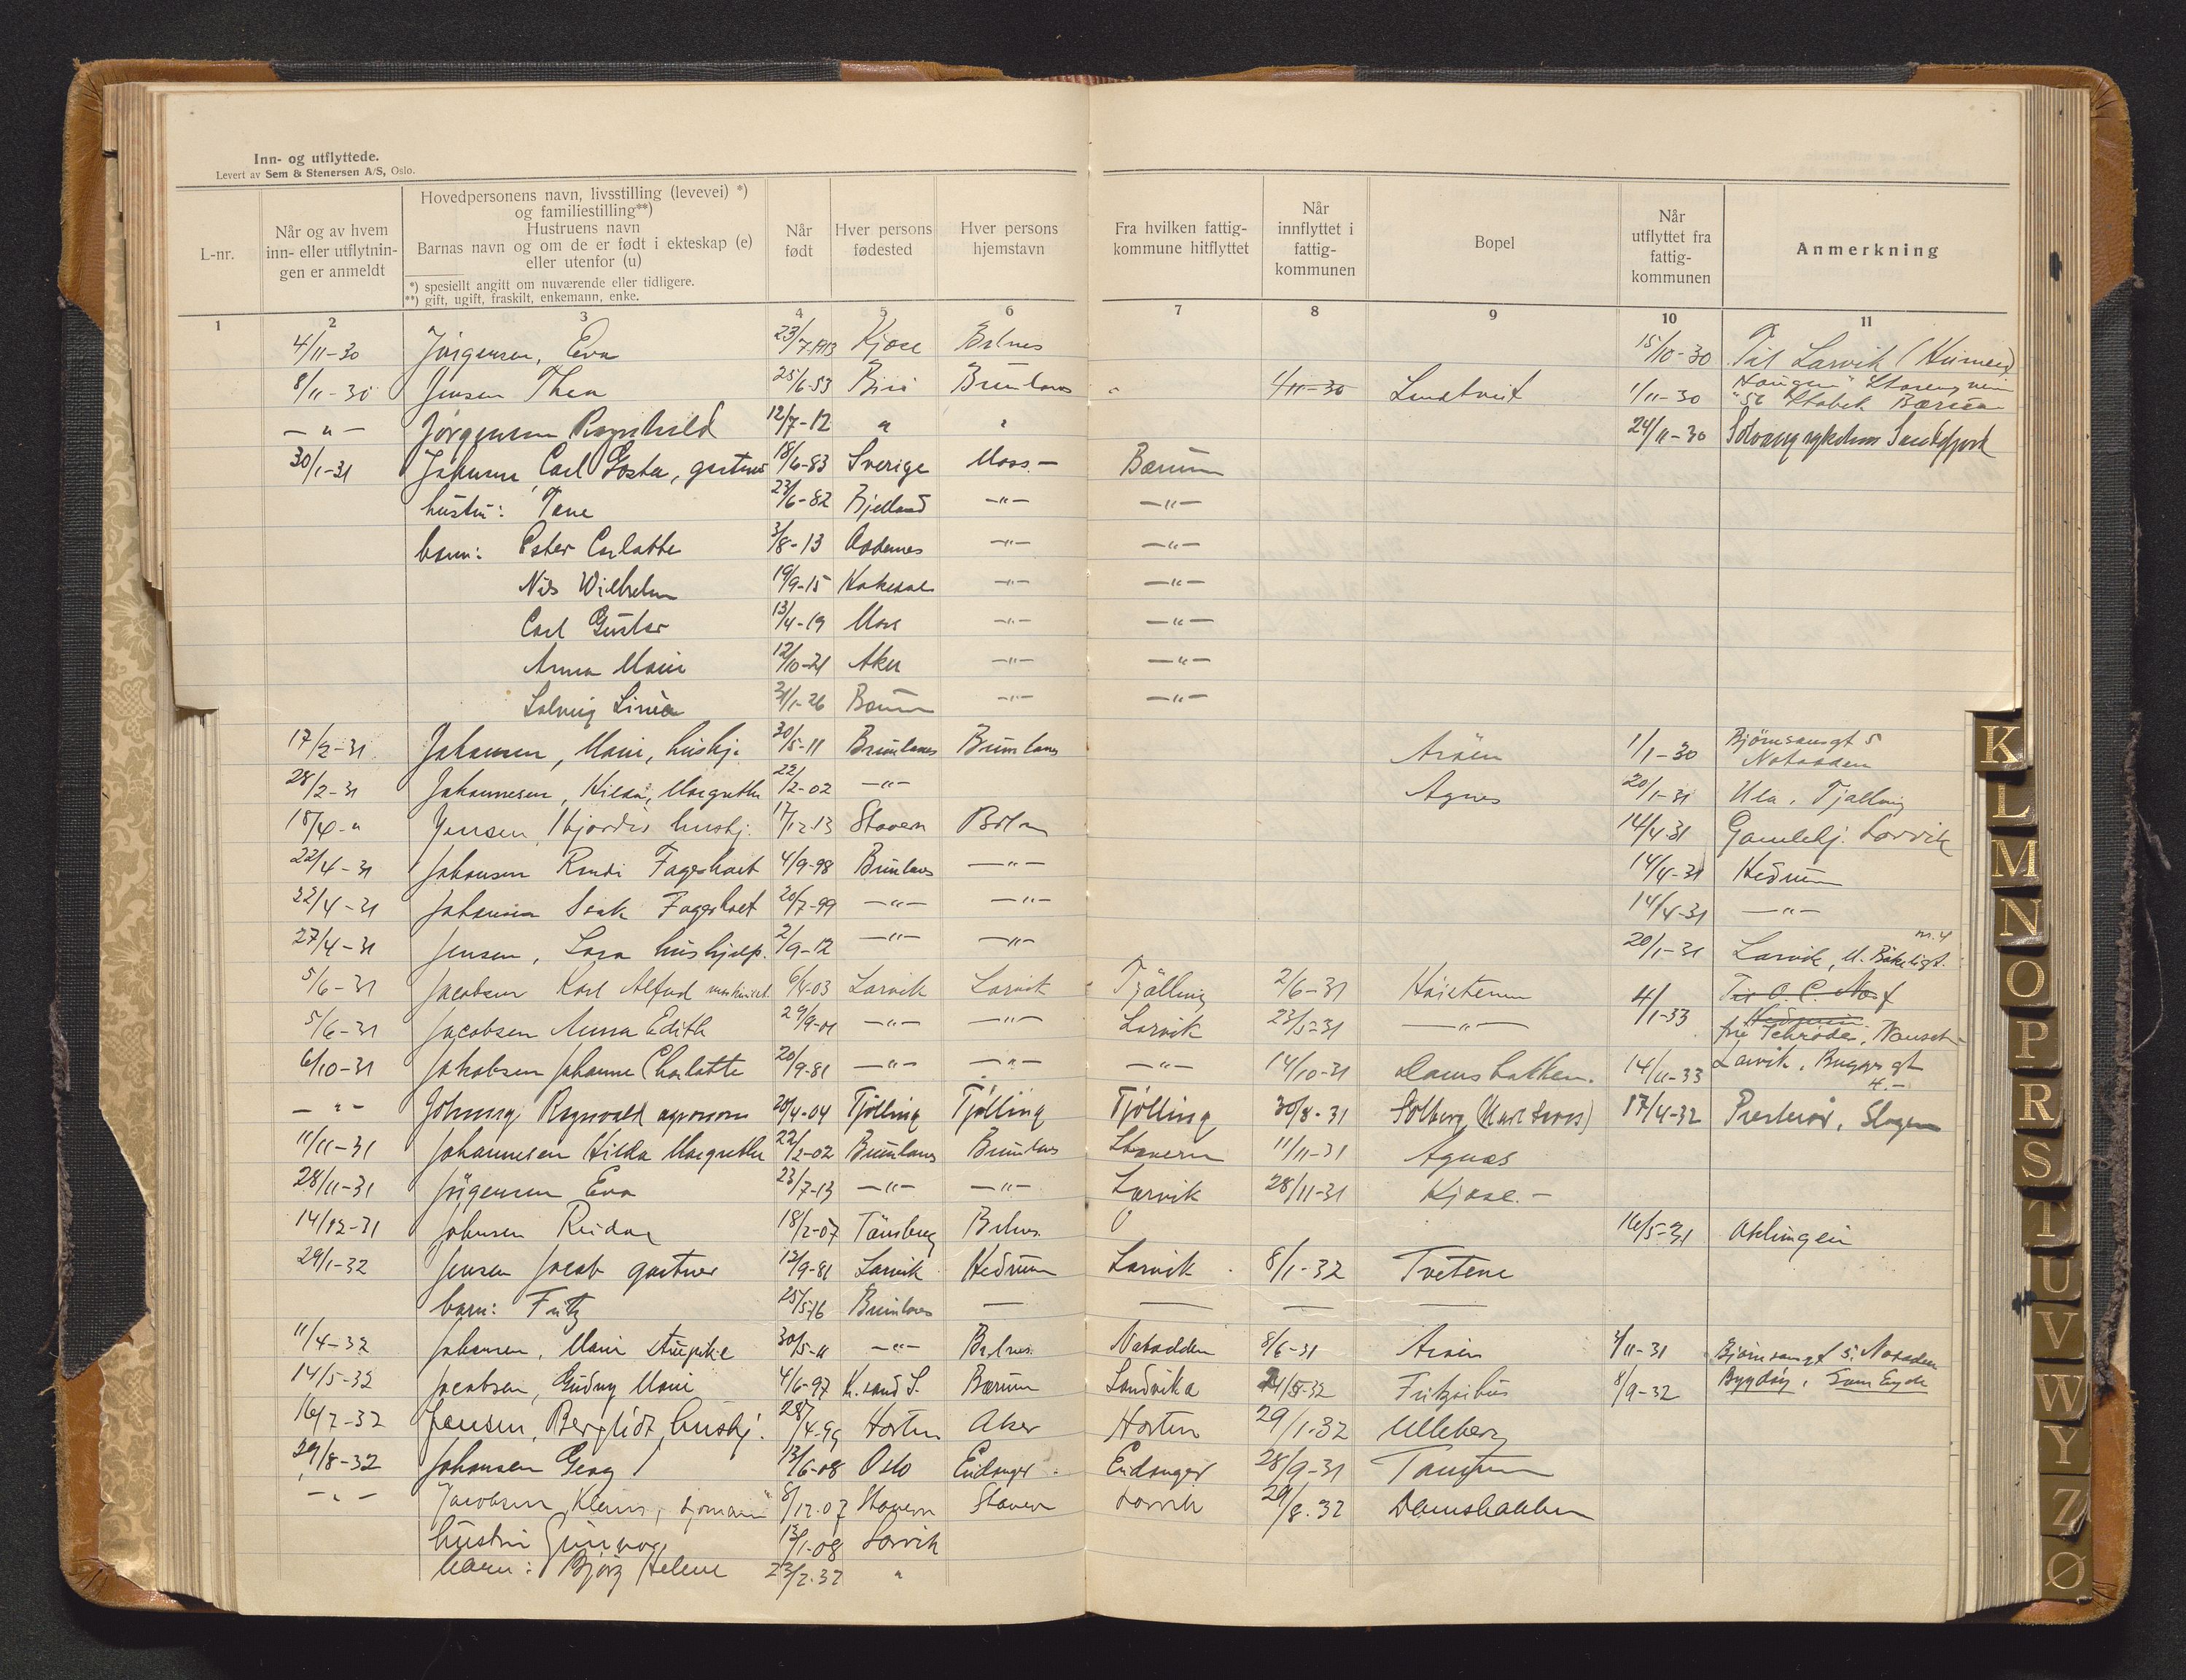 Inn- og utflyttede.
Levert av Sem & Stenersen A/S, Oslo.
L-nr.
Når og av hvem inn- eller utflytnin- gen er anmeldt
Hovedpersonens navn, livsstilling (levevei) *)
og familiestilling**)
Hustruens navn
Barnas navn og om de er født i ekteskap (e)
eller utenfor (u)
*) spesiellt angitt om nuværende eller tidligere.
**) gift, ugift, fraskilt, enkemann, enke.
Når født
Hver persons fødested
Hver persons hjemstavn
Fra hvilken fattig- kommune hitflyttet
Når innflyttet i fattig- kommunen
Bopel
Når utflyttet fra fattig- kommunen
Anmerkning
1 2 3 4 5 6 7 8 9 10 11
4/11-30 Jörgensen, Eva 23/7-1913 Kjose Brlnes 15/10-30 Til Larvik
8/11-30 Jensen Thea 25/6-53 Brunlanes 1/11-30 1/11-30 Stabek Bærum
— " — Jörgensen Ragnhild 12/7-12 " " 24/11-30 Solvang sykehus Sandefjord
30/1-31 Johnsen, Carl Gösta, gartner 18/6-83 Sverige Moss.— Bærum
hustru: Tone 23/6-82 Bjelland —"— —"—
barn: Ester Carlotte 3/8-13 —"— —"—
Nils Wilhelm 19/9-15 —"— —"—
Carl Gustav 13/4-19 Moss —"— —"—
Anna Marie 12/10-21 Aker —"— —"—
Solveig Linèa 31/1-26 Bærum —"— —"—
17/2-31 Johansen, Marie, hushj. 30/5-11 Brunlanes Brunlanes 1/1-30 Björnsonsgt 5
Notodden
28/2-31 Johannesen, Hilda, Margrethe 22/2-02 —"— Agnes 20/1-31 Ula, Tjølling
18/4-" Jensen, Hjördis hushj. 17/12-13 Stavern 14/4-31 Larvik
22/4-31 Johansen Randi Fagerholt 4/9-98 Brunlanes —"— 14/4-31 Hedrum
22/4-31 Johansen Fagerholt 20/7-99 —"— —"— 14/4-31 —"—
27/4-31 Jensen, hushjelp. 2/9-12 —"— —"— 20/1-31 Larvik, nr. 4
5/6-31 Jacobsen Karl Alfred maskinist 6/4-03 Larvik Larvik Tjølling 2/6-31 4/1-33
5/6-31 Jacobsen Anna Edith 29/9-01 —"— —"— Larvik 23/5-31 —"—
6/10-31 Jakobsen Johanne Charlotte 20/9-81 —"— —"— —"— 14/10-31 Damsbakken. 14/11-33 Larvik, Bugges gt 4.—
— " — Ragnvald agronom 20/4-04 Tjölling Tjölling Tjölling 30/8-31 Solberg 17/4-32 Presterød, Slagen
11/11-31 Johannesen Hilda Margrethe 22/2-02 Brunlanes Brunlanes Stavern 11/11-31 Agnæs
28/11-31 Jörgensen Eva 23/7-13 —"— —"— Larvik 28/11-31 Kjose.—
14/12-31 Johnsen Reidar 18/2-07 Tönsberg Brlnes 16/5-31
29/1-32 Jensen Jacob gartner 12/9-81 Larvik Hedrum Larvik 8/1-32 Tvetene
barn: Fritz 25/5-16 Brunlanes — — — —
11/4-32 Johansen, Marie 30/5-11 —"— Brlnes. Notodden 8/6-31 4/11-31 Björnsonsgt 5. Notodden
14/5-32 Jacobsen, Gudny Marie 4/6-97 K.sand S. Bærum Sandvika 8/9-32 Bygdøy
16/2-32 Jensen, Bergliot hushj. 28/4-99 Horten Aker Horten 29/1-32 Ulleberg
29/8-32 Johansen Georg 13/6-08 Oslo Eidanger Eidanger 28/9-31
— " — Jacobsen, 8/12-07 Stavern Stavern Larvik 29/8-32 Damsbakken
hustru Gunvor 13/1-08 Larvik
barn: Bjørg Helene 23/2-32 "
K
L
M
N
O
P
R
S
T
U
V
W
Y
Z
Ø